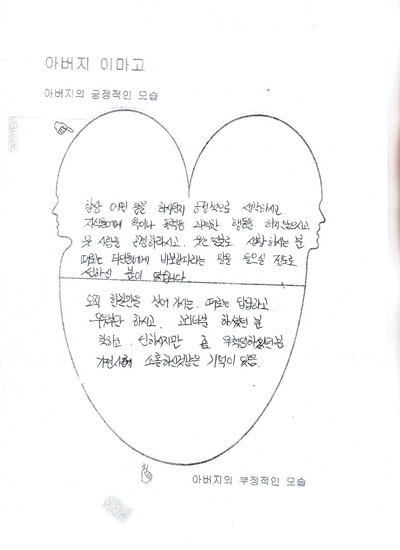 아버지 이마고
아버지의 긍정적인 모습
항상 어떤 일을 하시던지 긍정적으로 생각하시고
자식들에게 욕이나 폭력등 과격한 행동을 하지 않으시고
웃 사람을 공경하라시고, 웃는 얼굴로 생활하시는 분
때로는 타인들에게 바보같다라는 말을 들으실 정도로
선하신 분이 였습니다
오직 한길만을 살어가시는, 때로는 답답하고
하시고, 고리타분 하셨던 분
착하고 선하시지만 좀 무책임하셨던분
가정사에 소홀하신것같은 기억이 있음.
아버지의 부정적인 모습